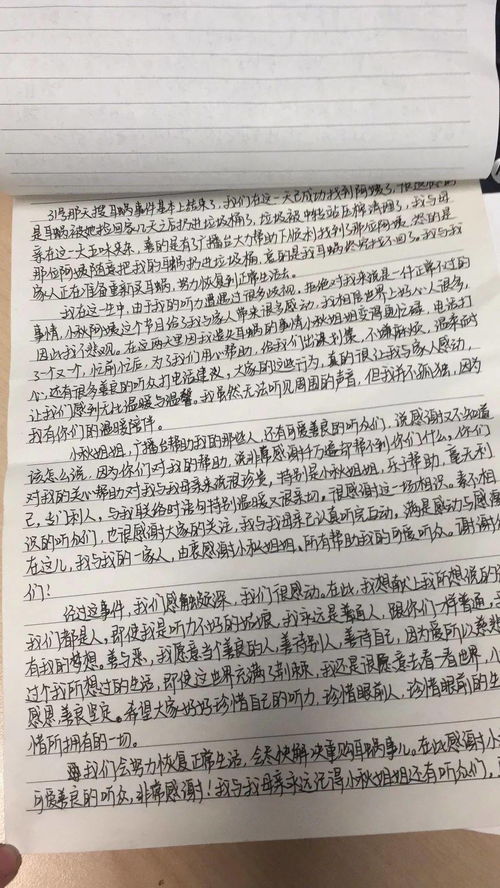 31号那天搜耳蜗事件基本上结束了,我们在这一天已成功找到阿姨了,但遗憾的
是耳蜗被她捡回家几天之后扔进垃圾桶了,垃圾被中转站压榨清理了,我与母
亲在这一天五味杂陈,喜的是有广播台大力帮助下顺利找到了那位阿姨,愁的是
那位阿姨随意把我的耳蜗扔进垃圾桶,哀的是我耳蜗终究找不回了。我与我
家人正在准备重新买耳蜗,努力恢复到正常生活去。
我在这一生中,由于我的听力遭遇过很多歧视,拒绝对我来说是一件正常不过的
事情,小秋阿姨这个节目给了我与家人带来很多感动,我相信世界上好心人很多,
因此我不悲观。在这两文里因我遗失耳蜗的事情小秋姐姐变得更忙碌,电话打
了一个又一个,忙前忙后,为了我们用心帮助,给我们出谋划策,不嫌麻烦,温柔耐
心,还有很多善良的听众打电话建议,大家的这些行为,真的很让我与家人感动,
让我们感到无比温暖与温馨。我虽然无法听见周围的声音,但我并不孤独,因为
我有你们的温暖陪伴。
小秋姐姐,广播台帮助我的那些人,还有可爱善良的听众们,说感谢又不知道
该怎么说,因为你们对我的帮助,说非常感谢千万遍都帮不到你们什么。你们
对我的关心帮助对我与我母亲来说很珍贵,特别是小秋姐姐,乐于帮助,毫无利
己,专门利人,与我联络时语句特别温暖又很亲切,很感谢这一场相识。素不相
识的听众们,也很感谢大家的关注,我与我母亲已认真听完启动,满是感动与感谢
在这儿,我与我的一家人,由衷感谢小秋姐姐、所有帮助我的可爱听众。谢谢你
们!
经过这事件,我们感触颇深,我们很感动。在此,我想献上我所想说的
我们都是人,即使我是听力不好的姑娘,我永远是普通人,跟你们一样普通,
有我的梦想。善与恶,我愿意当个善良的人,善待别人,善待自己,因为爱所以慈悲
过个我所想过的生活,即使这世界充满了荆棘,我还是很愿意去看一看世界,
感恩善良坚定。希望大家好好珍惜自己的听力,珍惜眼前人,珍惜眼前的生
惜所拥有的一切。
我们会努力恢复正常生活,会尽快解决重购耳蜗事儿。在此感谢小
可爱善良的听众,非常感谢!我与我母亲永远记得小秋姐姐还有听众们,